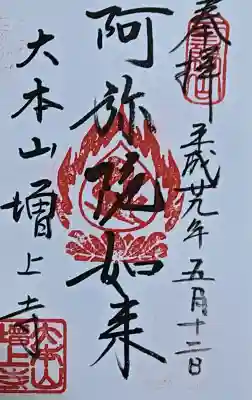 奉拝
平成廿九年五月十二日
阿弥陀如来
大本山増上寺
大本山
増上寺